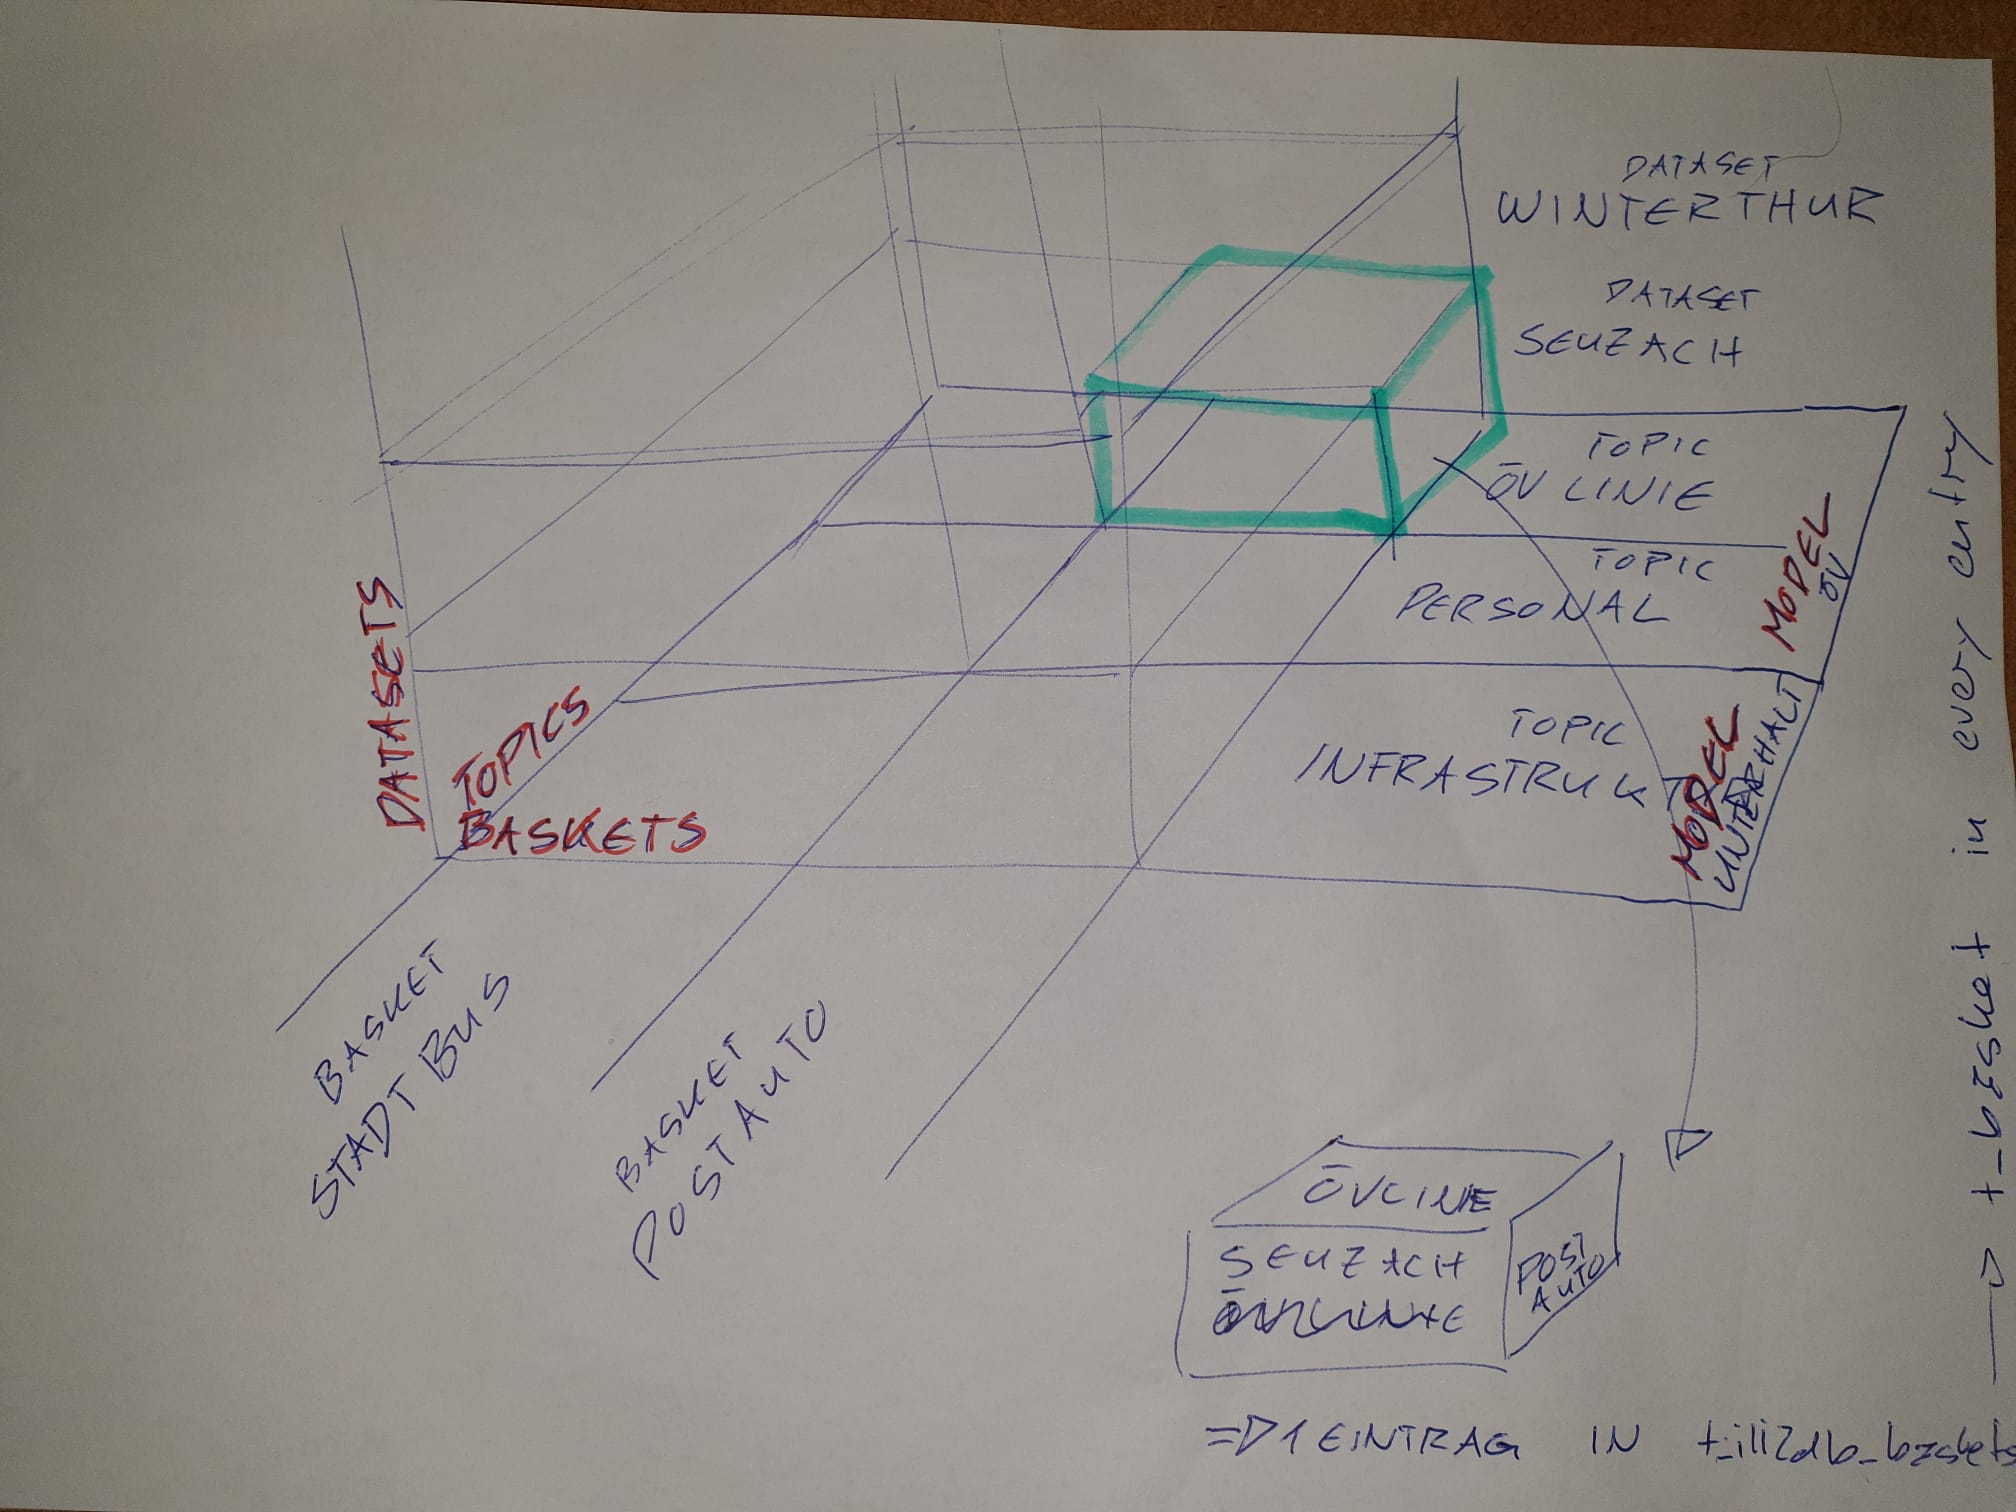 DATASET
WINTERTHUR
DATASET
SEUZACH
TOPIC
ÖV LINIE
TOPIC
PERSONAL
TOPIC
INFRASTRUKTUR
MODEL
ÖV
MODEL
UNTERHALT
DATASETS
TOPICS
BASKETS
BASKET
STADT BUS
BASKET
POSTAUTO
ÖVLINIE
SEUZACH
POST
AUTO
=> 1 EINTRAG IN t_ili2db_baskets
→ t_basket in every entry